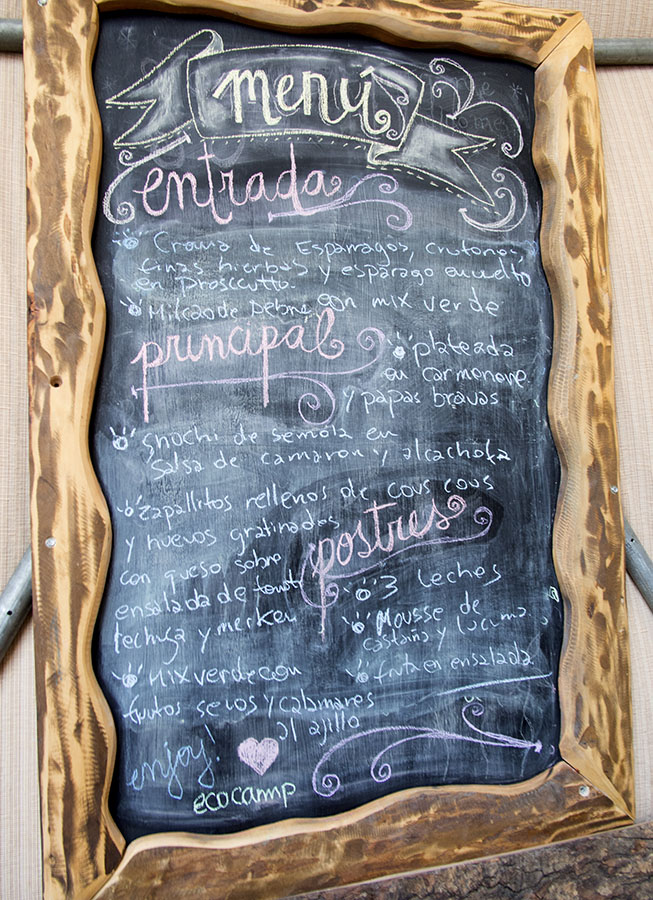 menú
entrada
Crema de Esparragos, crutones,
finas hierbas y esparago envuelto
en Prosccutto.
Milcao de Debne con mix verde
principal
plateada
en carmenere
y papas bravas
gnochi de semola en
salsa de camaron y alcachofa
zapallitos rellenos de cous cous
y huevos gratinados
con queso sobre
ensalada de tomate
lechuga y merken
Mix verde con
frutos secos y calamares
al ajillo
postres
3 leches
Mousse de
castaña y lucuma
fruta en ensalada
enjoy!
ecocamp